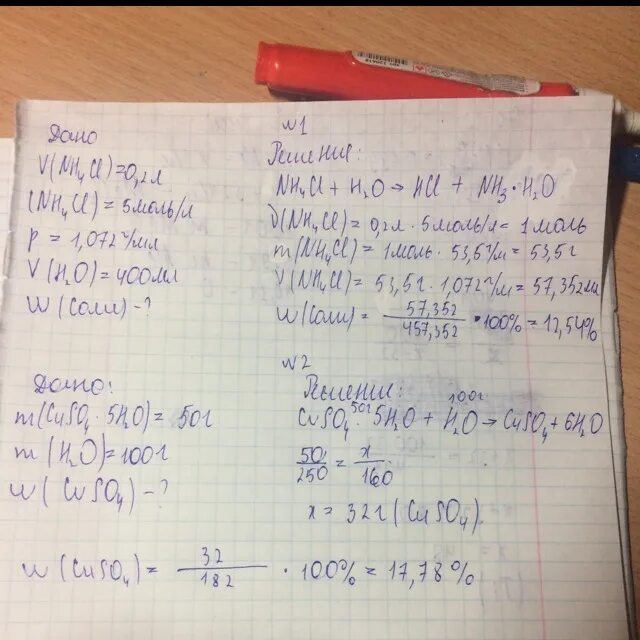 №1
Дано
V(NH₄Cl)=0,2л
(NH₄Cl)=5моль/л
ρ = 1,072 г/мл
V(H₂O)=400мл
W(соли)-?
Решение:
NH₄Cl + H₂O → HCl + NH₃·H₂O
ν(NH₄Cl)= 0,2л · 5моль/л= 1моль
m(NH₄Cl)= 1моль · 53,5г/м= 53,5г
V(NH₄Cl)= 53,5г · 1,072г/м= 57,352мл
W(соли)= 57,352/457,352 · 100% = 12,54%
№2
Дано:
m(CuSO₄·5H₂O)= 50г
m(H₂O)=100г
W(CuSO₄)-?
Решение:
50г 100г
CuSO₄·5H₂O + H₂O → CuSO₄+6H₂O
50/250 = x/160
x = 32г (CuSO₄)
W(CuSO₄)= 32/182 · 100% = 17,78%